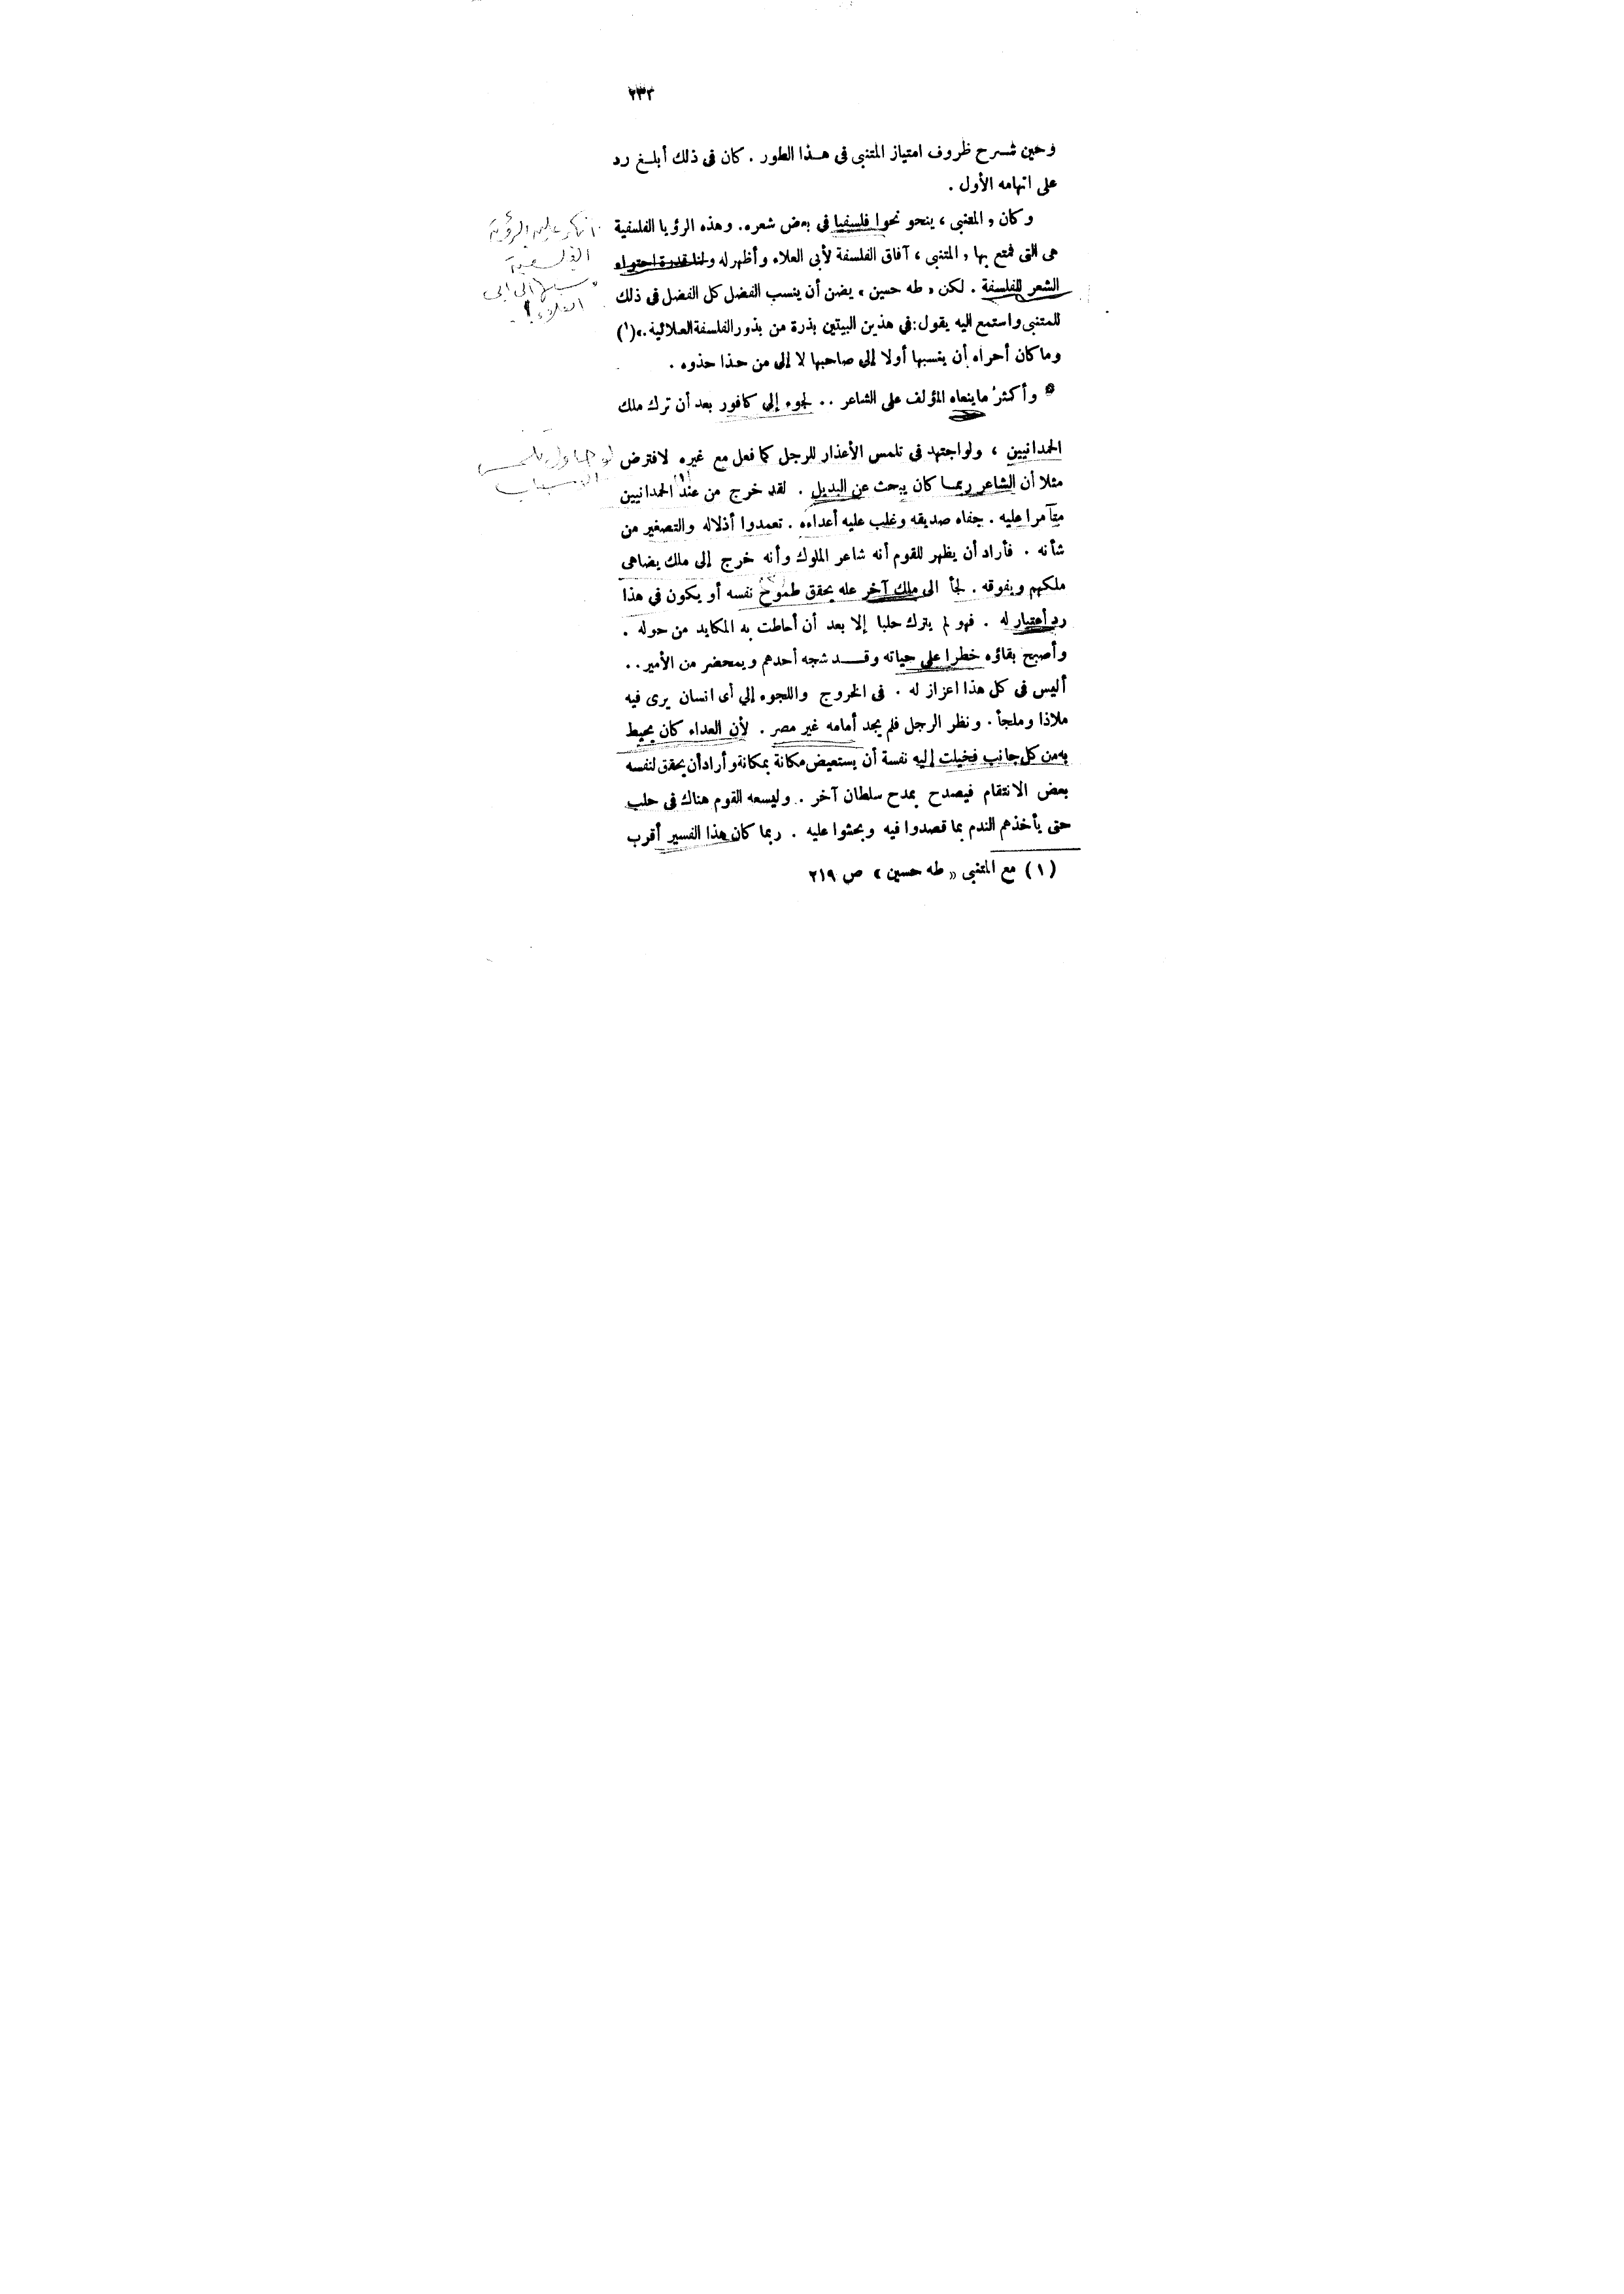 ٢٣٢
وحين شرح ظروف امتياز المتنبى فى هذا الطور . كان فى ذلك أبلغ رد
على اتهامه الأول .
وكان « المتنبى » ينحو نحوا فلسفيا فى بعض شعره . وهذه الرؤيا الفلسفية
هى التى فتح بها « المتنبى » آفاق الفلسفة لأبى العلاء وأظهر له ولنا قدرة احتواء
الشعر للفلسفة . لكن « طه حسين » يضن أن ينسب الفضل كل الفضل فى ذلك
للمتنبى واستمع اليه يقول : فى هذين البيتين بذرة من بذور الفلسفة العلائية .»(١)
وما كان أحراه أن ينسبها أولا إلى صاحبها لا إلى من حذا حذوه .
وأكثر ماينعاه المؤلف على الشاعر .. لجوء إلى كافور بعد أن ترك ملك
الحمدانيين ، ولو اجتهد فى تلمس الأعذار للرجل كما فعل مع غيره لافترض
مثلا أن الشاعر ربما كان يبحث عن البديل . لقد خرج من عند الحمدانيين
متآمرا عليه . جفاه صديقه وغلب عليه أعداءه . تعمدوا أذلاله والتصغير من
شأنه . فأراد أن يظهر للقوم أنه شاعر الملوك وأنه خرج إلى ملك يضاهى
ملكهم ويفوقه . لجأ الى ملك آخر عله يحقق طموح نفسه أو يكون فى هذا
رد أعتبار له . فهو لم يترك حلبا إلا بعد أن أحاطت به المكايد من حوله .
وأصبح بقاؤه خطرا على حياته وقد شجه أحدهم وبمحضر من الأمير ..
أليس فى كل هذا اعزاز له . فى الخروج واللجوء إلي أى انسان يرى فيه
ملاذا وملجأ . ونظر الرجل فلم يجد أمامه غير مصر . لأن العداء كان يحيط
به من كل جانب فخيلت إليه نفسة أن يستعيض مكانة بمكانة وأراد أن يحقق لنفسه
بعض الانتقام فيصدح بمدح سلطان آخر . وليسعه القوم هناك فى حلب
حتى يأخذهم الندم بما قصدوا فيه وبحثوا عليه . ربما كان هذا الفسير أقرب
(١) مع المتنبى « طه حسين » ص ٢١٩
انكر عليه الرؤية
الفلسفية
نسبها الى ابى
العلاء !
لو حاول تلمس